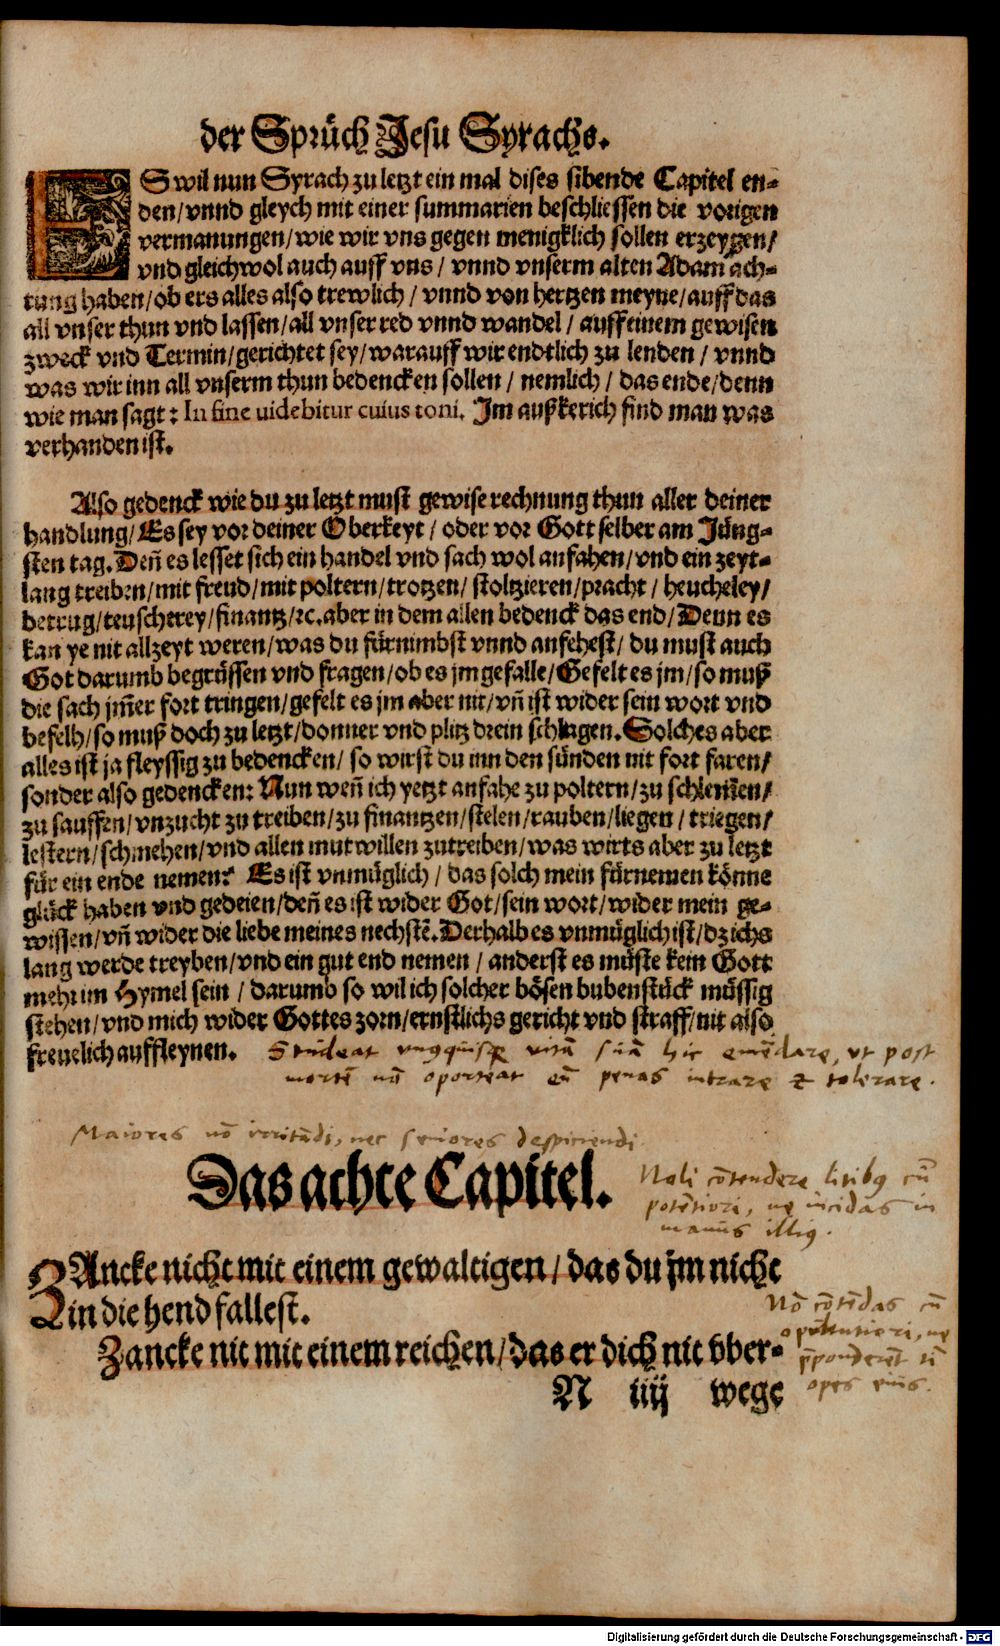 der Sprüch Jesu Syrachs.
ES wil nun Syrach zu letzt ein mal dises sibende Capitel en-
den/vnnd gleych mit einer summarien beschliessen die vorigen
vermanungen/wie wir vns gegen menigklich sollen erzeygen/
vnd gleichwol auch auff vns/ vnnd vnserm alten Adam ach-
tung haben/ob ers alles also trewlich/ vnnd von hertzen meyne/auff das
all vnser thun vnd lassen/all vnser red vnnd wandel/ auff einem gewisen
zweck vnd Termin/gerichtet sey/warauff wir endtlich zu lenden/ vnnd
was wir inn all vnserm thun bedencken sollen/ nemlich/ das ende/denn
wie man sagt: In fine uidebitur cuius toni. Im außkerich find man was
verhanden ist.
Also gedenck wie du zu letzt must gewise rechnung thun aller deiner
handlung/Es sey vor deiner Oberkeyt/ oder vor Gott selber am Jüng-
sten tag. Deñ es lesset sich ein handel vnd sach wol anfahen/vnd ein zeyt-
lang treiben/mit freud/mit poltern/trotzen/ stoltzieren/pracht/ heucheley/
betrug/teuscherey/finantz/ꝛc. aber in dem allen bedenck das end/Denn es
kan ye nit allzeyt weren/was du fürnimbst vnnd anfehest/ du must auch
Got darumb begrüssen vnd fragen/ob es jm gefalle/Gefelt es jm/so muß
die sach jm̃er fort tringen/gefelt es jm aber nit/vñ ist wider sein wort vnd
befelh/so muß doch zu letzt/donner vnd plitz drein schlagen. Solches aber
alles ist ja fleyssig zu bedencken/ so wirst du inn den sünden nit fort faren/
sonder also gedencken: Nun weñ ich yetzt anfahe zu poltern/zu schlem̃en/
zu sauffen/vnzucht zu treiben/zu finantzen/stelen/rauben/liegen/ triegen/
lestern/schmehen/vnd allen mutwillen zutreiben/was wirts aber zu letzt
für ein ende nemen? Es ist vnmüglich/ das solch mein fürnemen könne
glück haben vnd gedeien/deñ es ist wider Got/sein wort/wider mein ge-
wissen/vñ wider die liebe meines nechstē. Derhalb es vnmüglich ist/dz ichs
lang werde treyben/vnd ein gut end nemen/ anderst es müste kein Gott
mehr im Hymel sein/ darumb so wil ich solcher bösen bubenstück müssig
stehen/vnd mich wider Gottes zorn/ernstlichs gericht vnd straff/nit also
freuelich auffleynen. Studeat vnusquisq; vitā suā hic emēdare, vt post
mortē nō oporteat eū penas intrare & tolerare.
Maiores nō irritādi, nec seniores despiciendi
Das achte Capitel.
Noli cōtendere litibus cū
potētiori, ne incidas in
manus illius.
ZAncke nicht mit einem gewaltigen/das du jm nicht
in die hend fallest.
Nō cōtēdas cū
opulentiori, ne
Zancke nit mit einem reichen/das er dich nit vber-
p̄ponderēt tibi
opes eius.
N iiij wege